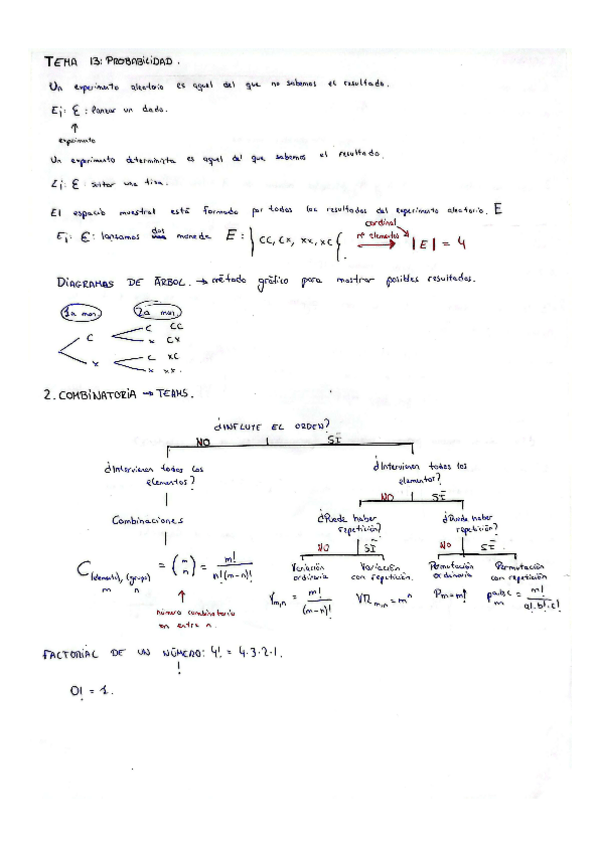 TEMA 13: PROBABILIDAD.
Un experimento aleatorio es aquel del que no sabemos el resultado.
Ej: Ɛ: lanzar un dado.
↑
experimento
Un experimento determinista es aquel del que sabemos el resultado.
Ej: Ɛ: soltar una tiza.
El espacio muestral está formado por todos los resultados del experimento aleatorio. E
Ej: Ɛ: lanzamos dos moneda E: {CC, CX, XX, XC}. cardinal nº elementos → |E| = 4
DIAGRAMAS DE ÁRBOL. → método gráfico para mostrar posibles resultados.
1a mon. 2a mon.
C CC
C
X CX
C XC
X
X XX.
2. COMBINATORIA → TEAMS.
¿INFLUYE EL ORDEN?
NO SÍ
¿Intervienen todos los elementos? ¿Intervienen todos los elementos?
NO SÍ
Combinaciones ¿Puede haber repetición? ¿Puede haber repetición?
NO SÍ NO SÍ
Variación ordinaria Variación con repetición. Permutación ordinaria Permutación con repetición
C(elementos), (grupo) m n = (m n) = m! / n!(m-n)!
Vm,n = m! / (m-n)! VRm,n = mⁿ Pm = m! P a,b,c m = m! / a!·b!·c!
↑
número combinatorio
m entre n.
FACTORIAL DE UN NÚMERO: 4! = 4·3·2·1.
!
0! = 1.